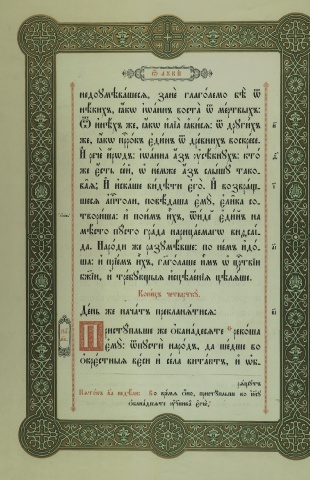 Ѿ лꙋкѝ
недоꙋмѣ́вашесѧ, занѐ глаго́лемо бѣ̀ ѿ
нѣ́кихъ, ꙗ҆́кѡ і҆ѡа́ннъ воста̀ ѿ ме́ртвыхъ:
Ѿ и҆нѣ́хъ же, ꙗ҆́кѡ и҆лїа̀ ꙗ҆ви́сѧ: ѿ дрꙋги́хъ
же, ꙗ҆́кѡ прⷪ҇ро́къ є҆ди́нъ ѿ дре́внихъ воскре́се.
И҆ речѐ и҆́рѡдъ: і҆ѡа́нна а҆́зъ ᲂу҆сѣ́кнꙋхъ: кто́
же є҆́сть се́й, ѡ҆ не́мже а҆́зъ слы́шꙋ тако-
ва́ѧ; И҆ и҆ска́ше ви́дѣти є҆го̀. И҆ возвра́щ-
шесѧ а҆пⷭ҇толи, повѣ́даша є҆мꙋ̀, є҆ли̑ка со-
твори́ша: и҆ пои́мъ и҆̀хъ, ѿи́де є҆ди́нъ на
мѣ́сто пꙋ́сто гра́да нарица́емагѡ видсаі́-
да. Наро́ди же разꙋмѣ́вше: по не́мъ идо́-
ша: и҆ прїе́мъ и҆̀хъ, глаго́лаше и҆̀мъ ѡ҆ црⷭ҇твїи
бж҃їи, и҆ тре́бꙋющыѧ и҆сцѣле́нїѧ цѣлѧ́ше.
Коне́цъ четверткꙋ̀.
Де́нь же нача́тъ преклонѧ́тисѧ:
Пристꙋ́пльше же ѻ҆бана́десѧте реко́ша
є҆мꙋ̀: ѿпꙋстѝ наро́дъ, да ше́дше во
ѻ҆кре́стныѧ ве́си и҆ се́ла вита́ютъ, и҆ ѡ҆б-
рѧ́щꙋтъ
Во вре́мѧ ѻ҆́но, пристꙋпи́ша ко і҆и҃сꙋ
ѻ҆бана́десѧте ᲂу҆чн҃ка̀ є҆гѡ̀: